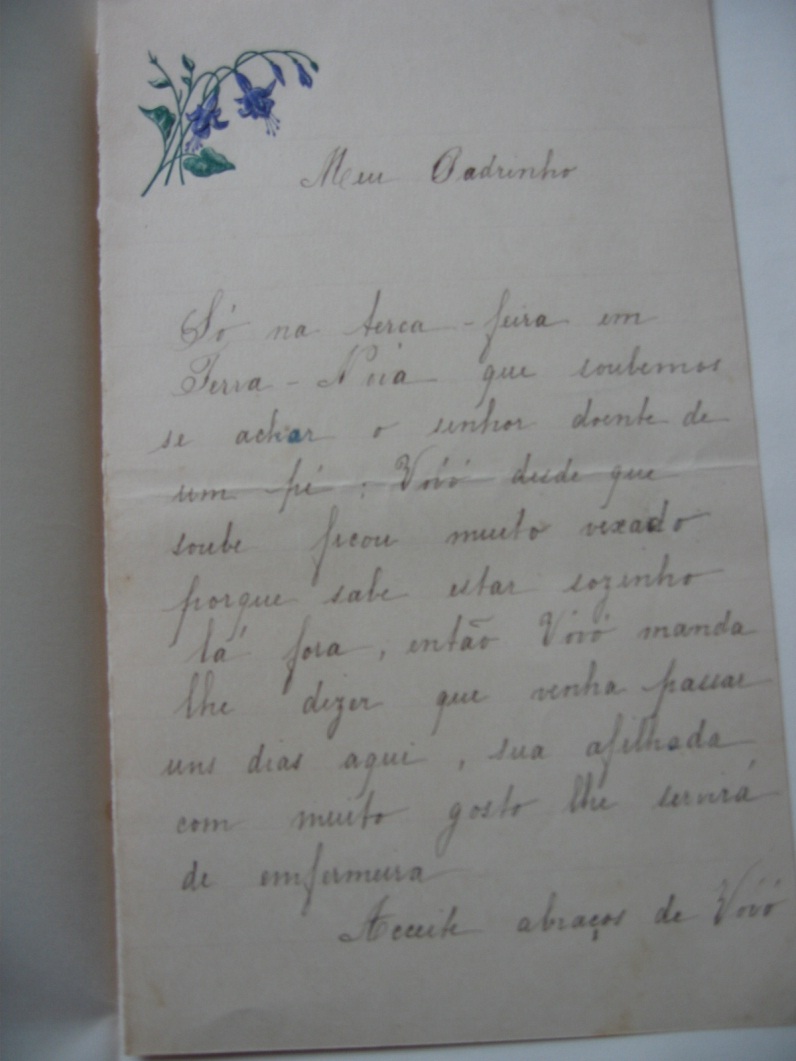 Meu Padrinho
Só na terca-feira em
Terra-Nova que soubemos
se achar o senhor doente de
um pé; Vóvó desde que
soube ficou muito vexado
porque sabe estar sozinho
lá fora, então Vóvó manda
lhe dizer que venha passar
uns dias aqui, sua afilhada
com muito gosto lhe servirá
de emfermeira
Acceite abraços de Vóvó